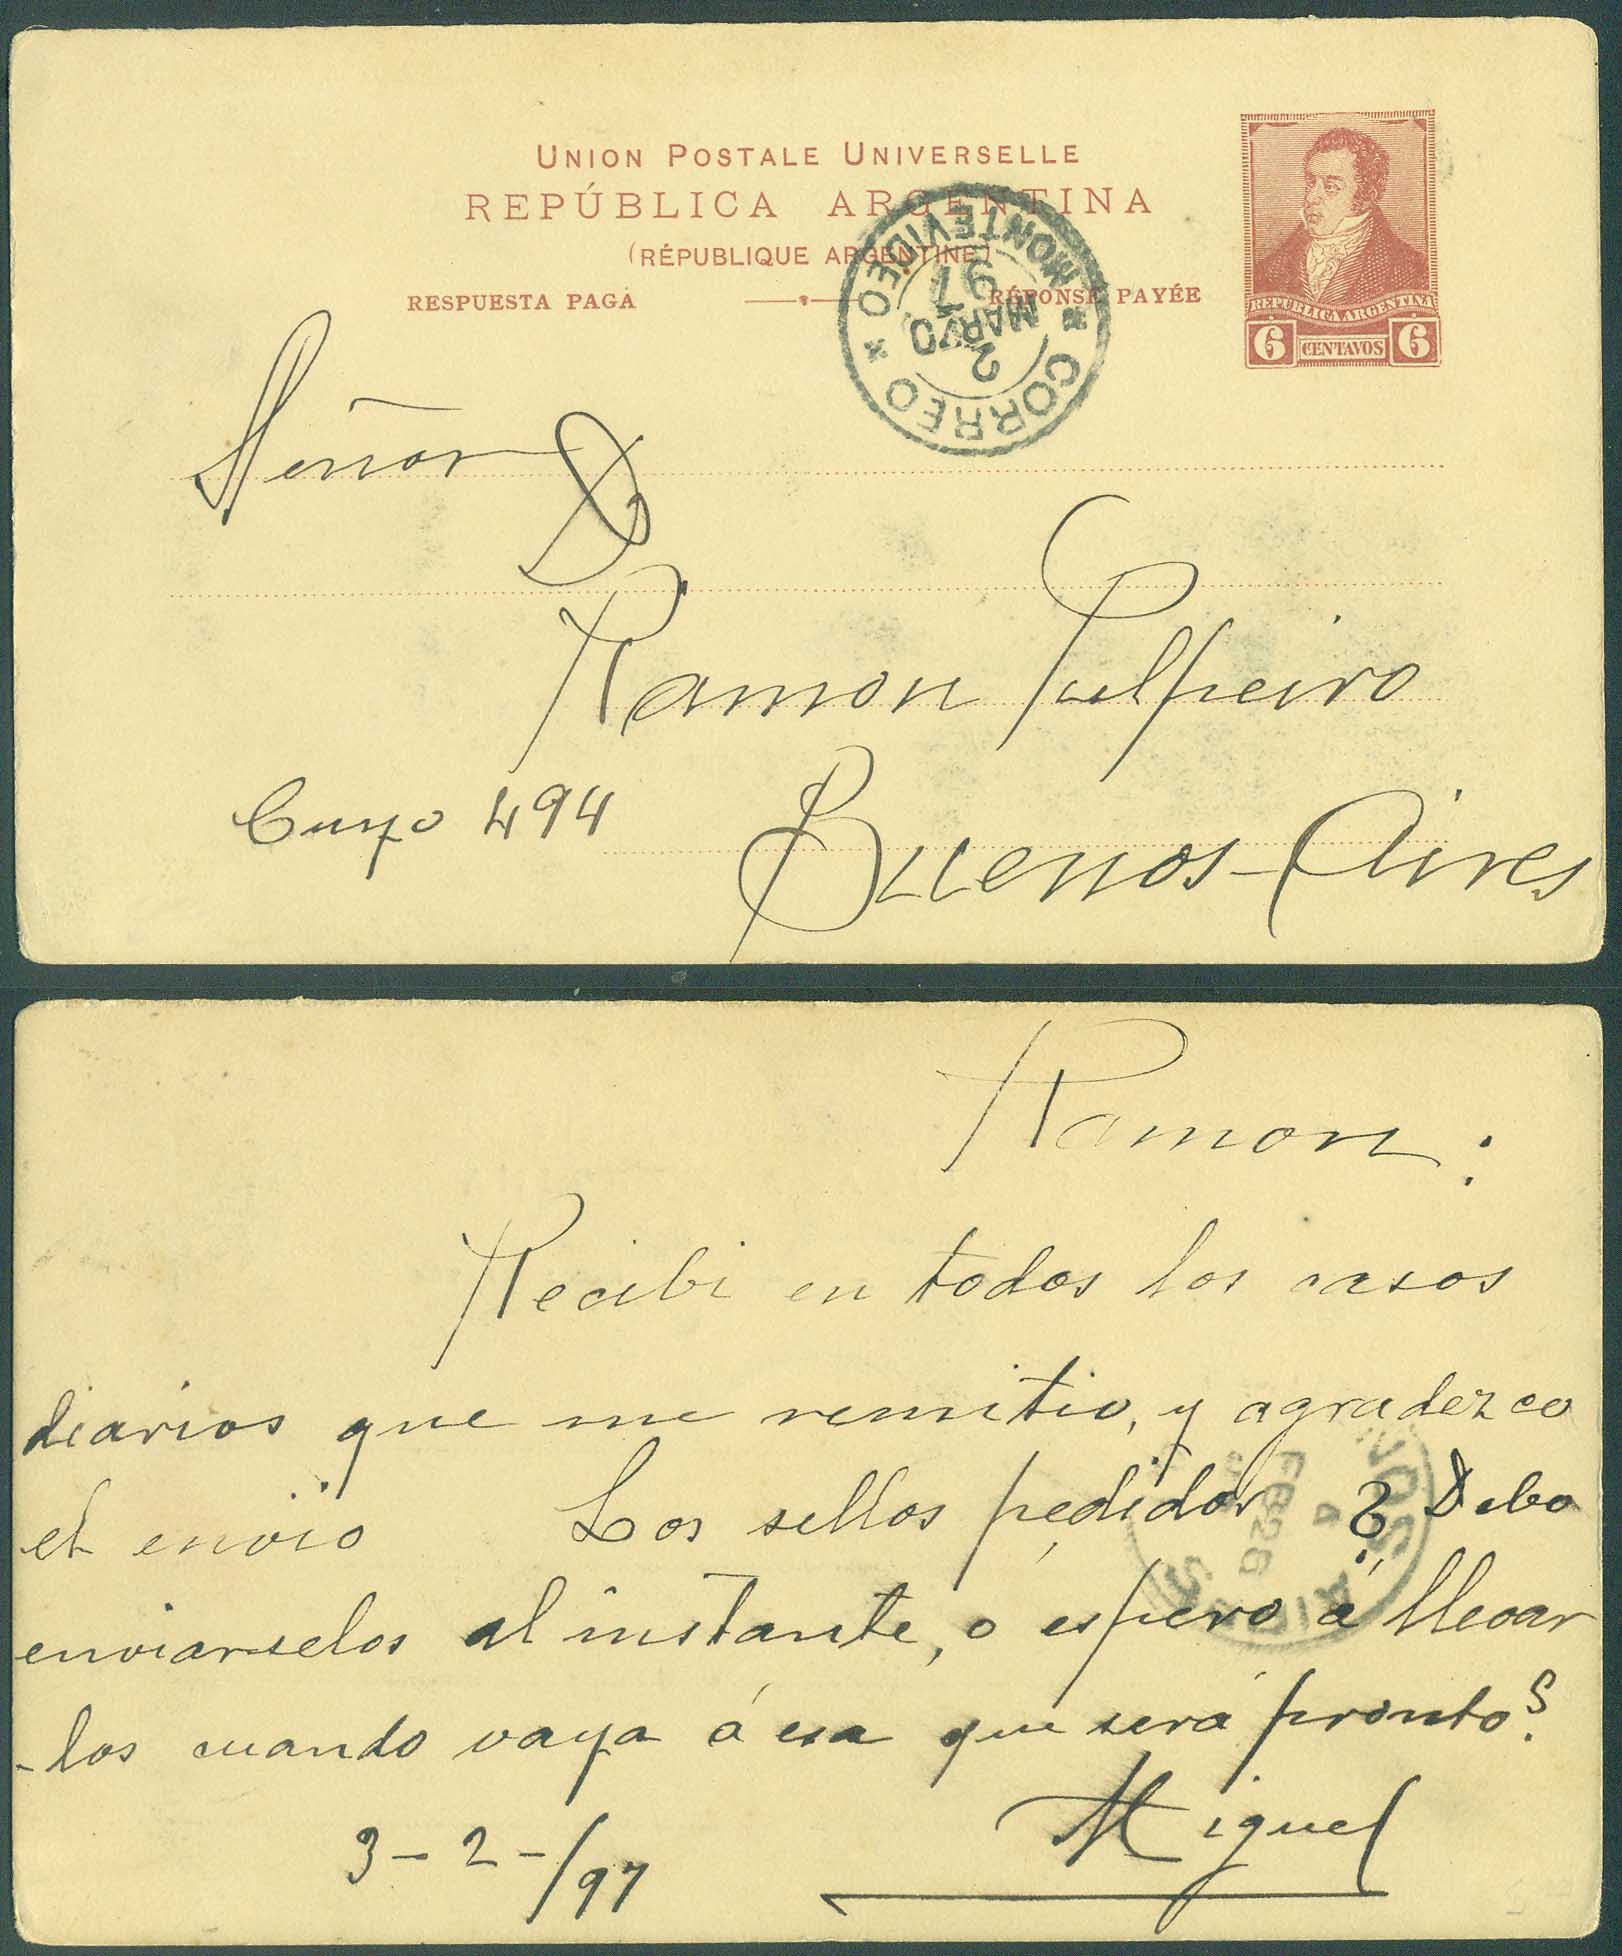 UNION POSTALE UNIVERSELLE
REPÚBLICA ARGENTINA
(RÉPUBLIQUE ARGENTINE)
RESPUESTA PAGA
RÉPONSE PAYÉE
REPUBLICA ARGENTINA
6 CENTAVOS 6
* CORREO * MONTEVIDEO
2
MARZO
97
Señor D
Ramon Pulpeiro
Cuyo 494
Buenos-Aires
Ramon:
Recibi en todos los casos
diarios que me remitio, y agradezco
el envio Los sellos pedidos ¿ Debo
enviarselos al instante, o espero á llevar
-los cuando vaya á esa que será pronto?
Miguel
3-2-/97
FEB 26
4